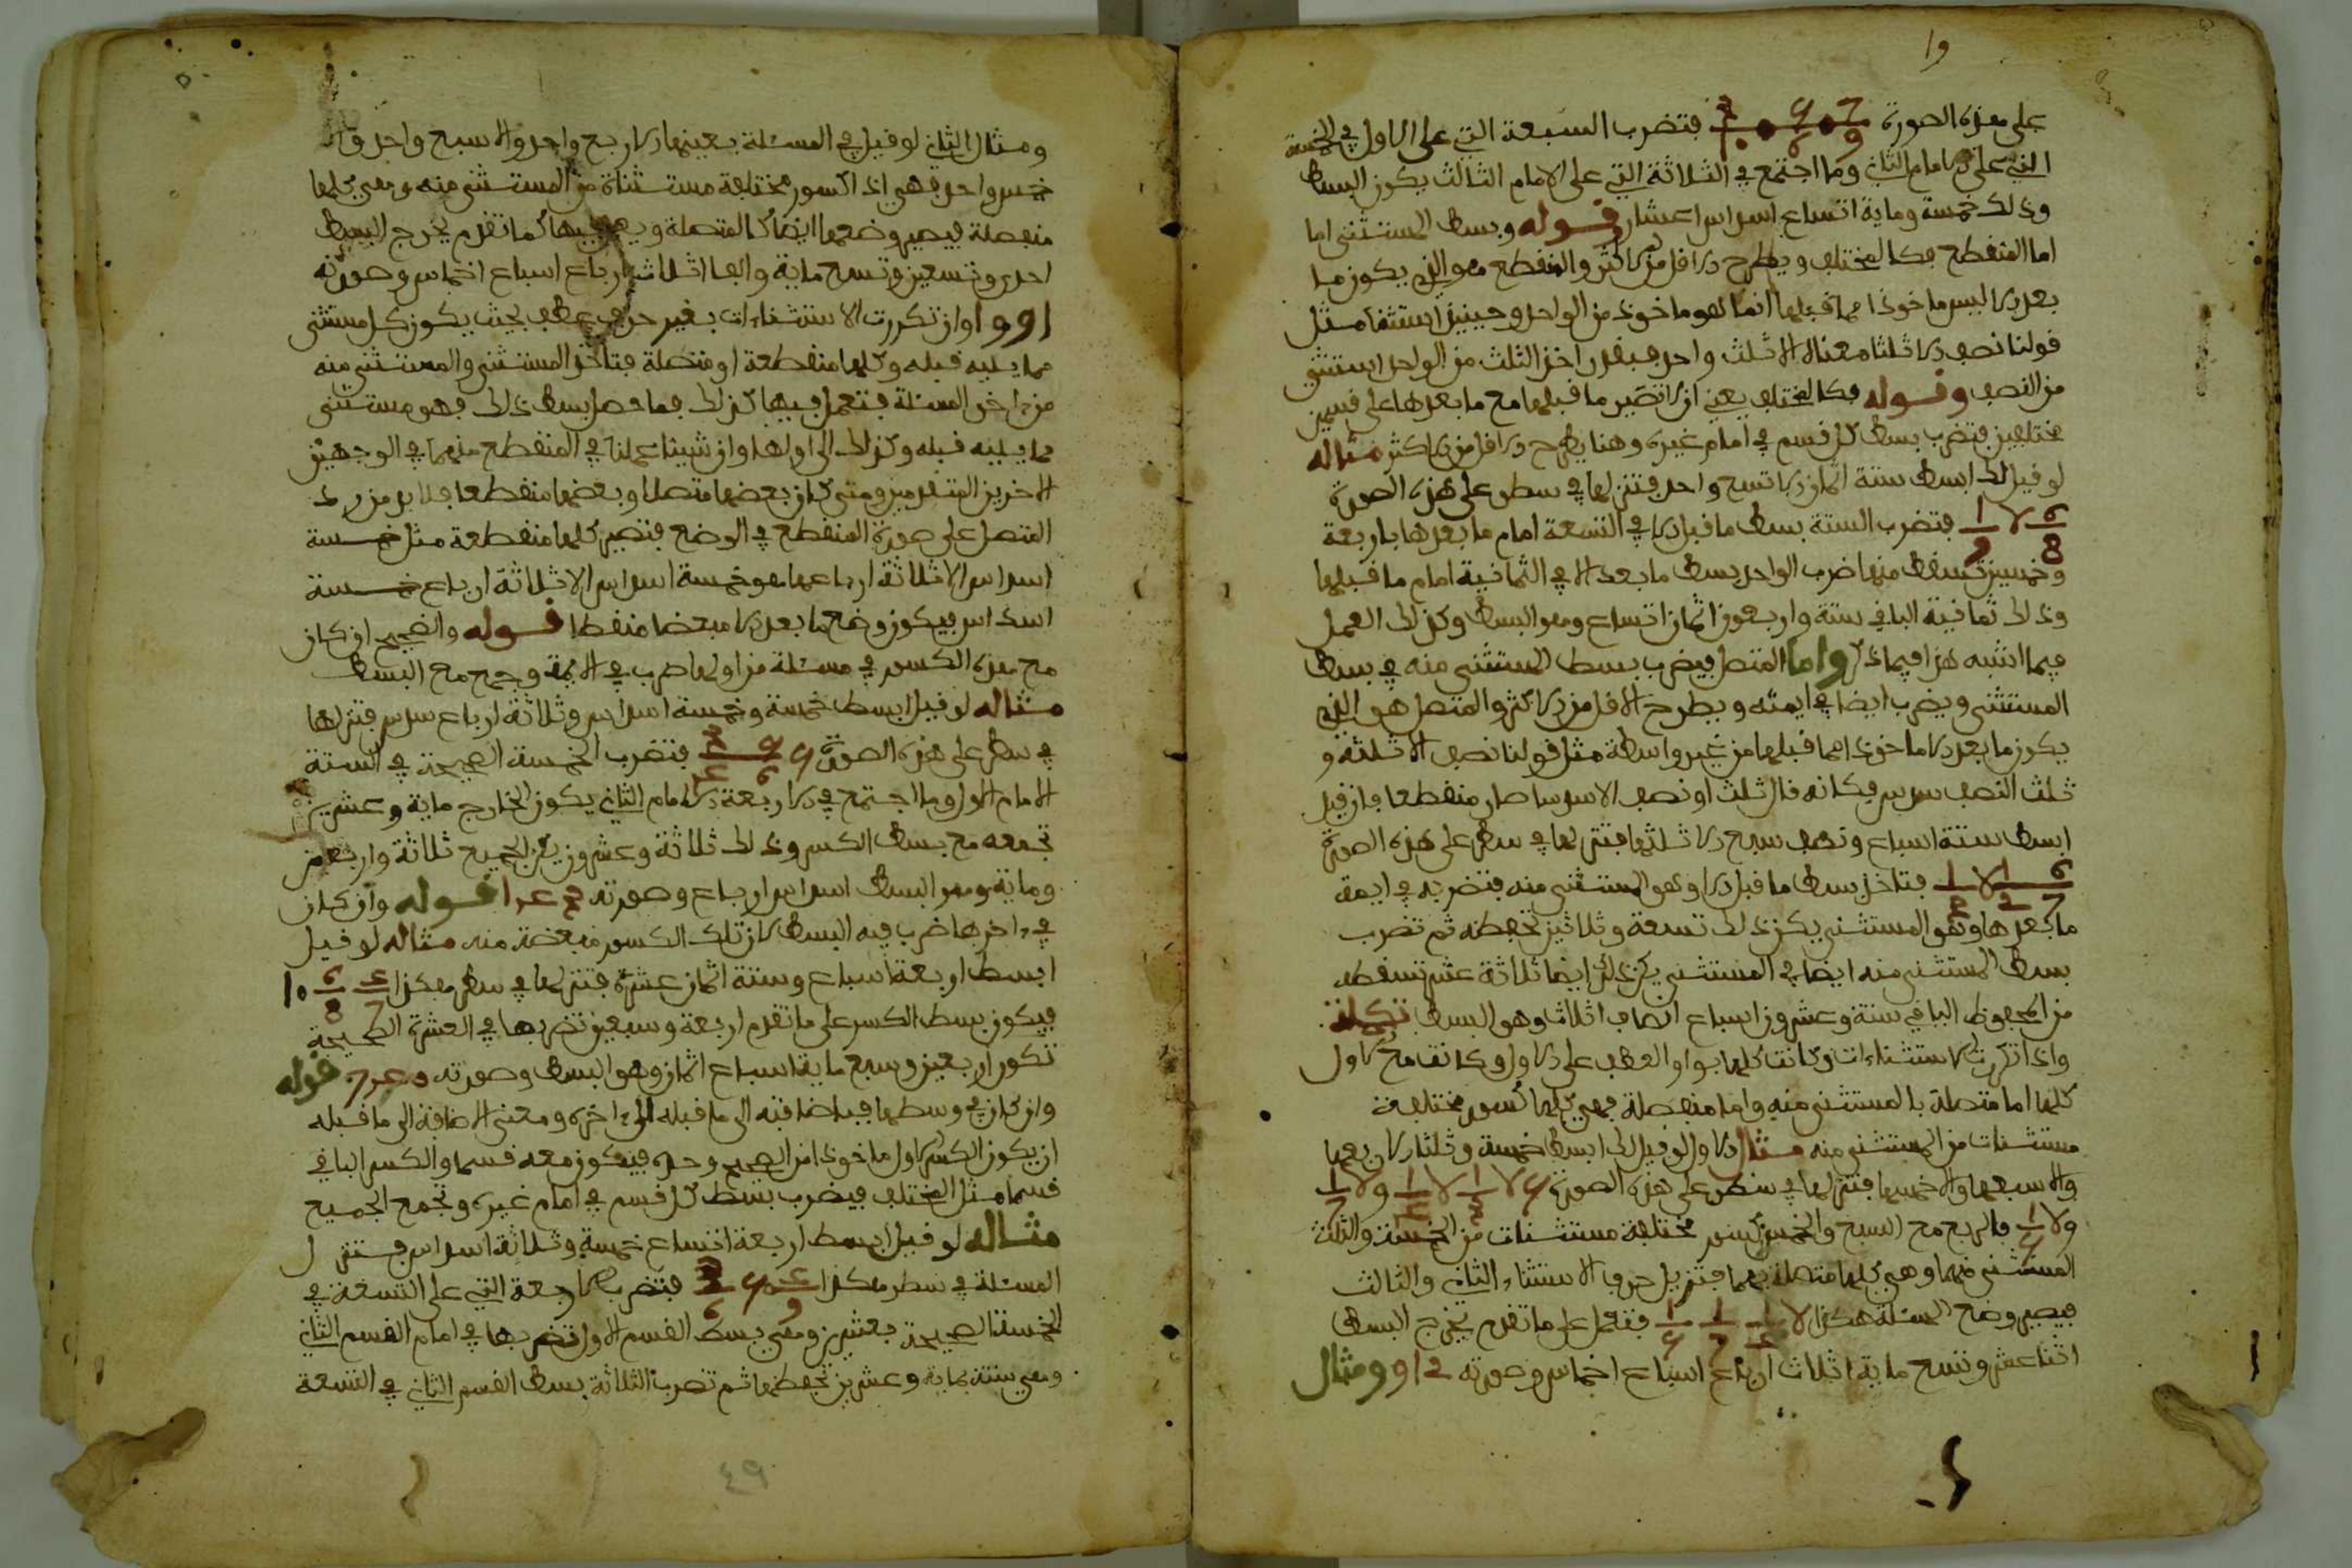 على هذه الصورة فتضرب السبعة التي على الاول في الخمسة
التي على الامام الثاني وما اجتمع في الثلاثة التي على الامام الثالث يكون البسط
وذلك خمسة وماية اتساع اسداس اعشار قوله وبسط المستثنى اما
اما المنقطع فكالمختلف ويطرح الاقل من الاكثر والمنقطع هو الذي يكون ما
بعد الا ليس ماخوذا مما قبلها انما هو ماخوذ من الواحد وحينئذ استثنا مثل
قولنا نصف الا ثلثا معناه الا ثلث واحد فبعد اخذ الثلث من الواحد استثني
من النصف وقوله فكالمختلف يعني ان تصير ما قبلها مع ما بعدها على قسمين
مختلفين فتضرب بسط كل قسم في امام غيره وهنا يطرح الاقل من الاكثر مثاله
لو قيل لك ابسط ستة اثمان الا تسع واحد فتنزلها في سطر على هذه الصورة
6/8 لا 1/9 فتضرب الستة بسط ما قبل الا في التسعة امام ما بعدها باربعة
وخمسين تسقط منها ضرب الواحد بسط ما بعد الا في الثمانية امام ما قبلها
وذلك ثمانية الباقي ستة واربعون اثمان اتساع وهو البسط وكذلك العمل
فيما اشبه هذا فيما ذكر واما المتصل فيضرب بسط المستثنى منه في بسط
المستثنى ويضرب ايضا في ايمته ويطرح الاقل من الاكثر والمتصل هو الذي
يكون ما بعد الا ماخوذا مما قبلها من غير واسطة مثل قولنا نصف الا ثلثه و
ثلث النصف سدس فكانه قال ثلث او نصف الا سدسا صار منقطعا فان قيل
ابسط ستة اسباع ونصف سبع الا ثلثها فتنزلها في سطر على هذه الصورة
فتاخذ بسط ما قبل الا وهو المستثنى منه فتضربه في ايمة
ما بعدها وهو المستثنى يكن ذلك تسعة وثلاثين تحفظه ثم تضرب
بسط المستثنى منه ايضا في المستثنى يكن ذلك ايضا ثلاثة عشر تسقطه
من المحفوظ الباقي ستة وعشرون اسباع انصاف اثلاث وهو البسط
واذا تكررت الاستثناءات وكانت كلها بواو العطف على الاول وكانت مع الاول
كلها اما متصلة بالمستثنى منه واما منفصلة فهي كلها كسور مختلفة
مستثنات من المستثنى منه مثال الاول لو قيل لك ابسط خمسة وثلثا الا ربعها
والا سبعها والا خمسها فتنزلها في سطر على هذه الصورة
فالربع مع السبع والخمس كسور مختلفة مستثنات من الخمسة والثلث
المستثنى منهما وهي كلها متصلة بهما فتزيل حرف الاستثناء الثاني والثالث
فيصير وضع المسئلة هكذا فتعمل على ما تقدم يخرج البسط
اثنا عشر وتسع ماية اثلاث ارباع اسباع اخماس وصورته ومثال
ومثال الثاني لو قيل في المسئلة بعينها الا ربع واحد والا سبع واحد والا
خمس واحد فهي اذا كسور مختلفة مستثناة من المستثنى منه وهي كلها
منفصلة فيصير وضعها ايضا كالمتصلة ويعمل فيها كما تقدم يخرج البسط
احد وتسعين وتسع ماية والفا اثلاث ارباع اسباع اخماس وصورته
1991 وان تكررت الاستثناءات بغير حرف عطف بحيث يكون كل مستثنى
مما يليه قبله وكلها منقطعة او متصلة فتاخذ المستثنى والمستثنى منه
من اخر المسئلة فتعمل فيها كذلك فما حصل بسط ذلك فهو مستثنى
مما يليه قبله وكذلك الى اولها وان شينا عملنا في المنقطع منهما في الوجهين
الاخرين المتقدمين ومتى كان بعضها متصلا وبعضها منقطعا فلا بد من رد
المتصل على صورة المنقطع في الوضع فتصير كلها منقطعة مثل خمسة
اسداس الا ثلاثة ارباعها هو خمسة اسداس الا ثلاثة ارباع خمسة
اسداس فيكون وضع ما بعد الا مبعضا منقطا قوله والصحيح ان كان
مع هذه الكسور في مسئلة من اولها ضرب في الايمة وجمع مع البسط
مثاله لو قيل ابسط خمسة وخمسة اسداس وثلاثة ارباع سدس فتنزلها
في سطر على هذه الصورة فتضرب الخمسة الصحيحة في الستة
الامام الاول وما اجتمع في الاربعة الامام الثاني يكون الخارج ماية وعشرين
تجمعه مع بسط الكسر وذلك ثلاثة وعشرون يكن الجميع ثلاثة واربعين
وماية وهو البسط اسداس ارباع وصورته قوله وان كان
في اخرها ضرب فيه البسط لان تلك الكسور مبعضة منه مثاله لو قيل
ابسط اربعة اسباع وستة اثمان عشرة فتنزلها في سطر هكذا
فيكون بسط الكسر على ما تقدم اربعة وسبعين تضربها في العشرة الصحيحة
تكون اربعين وسبع ماية اسباع اثمان وهو البسط وصورته قوله
وان كان في وسطها فباضافته الى ما قبله الى اخره ومعنى الاضافة الى ما قبله
ان يكون الكسر الاول ماخوذا من الصحيح وحده فيكون معه قسما والكسر الباقي
قسما مثل المختلف فيضرب بسط كل قسم في امام غيره وتجمع الجميع
مثاله لو قيل ابسط اربعة اتساع خمسة وثلاثة اسداس فتنزل
المسئلة في سطر هكذا فتضرب الاربعة التي على التسعة في
الخمسة الصحيحة بعشرين وهي بسط القسم الاول تضربها في امام القسم الثاني
وهي ستة بماية وعشرين تحفظها ثم تضرب الثلاثة بسط القسم الثاني في التسعة
٤٩